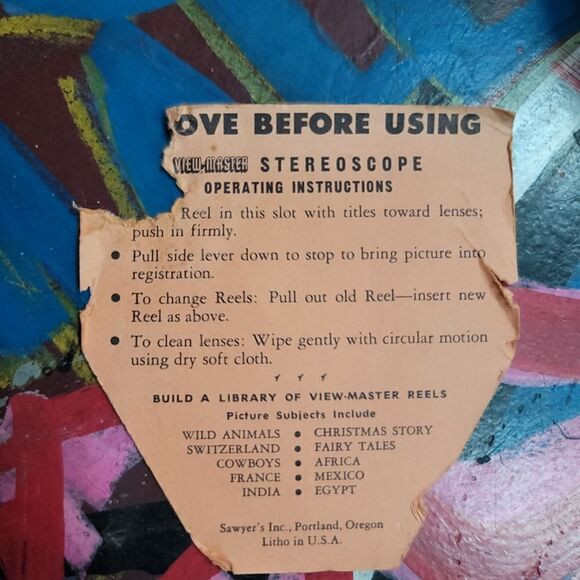 OVE BEFORE USING
VIEW-MASTER STEREOSCOPE
OPERATING INSTRUCTIONS
Reel in this slot with titles toward lenses;
push in firmly.
• Pull side lever down to stop to bring picture into
registration.
• To change Reels: Pull out old Reel—insert new
Reel as above.
• To clean lenses: Wipe gently with circular motion
using dry soft cloth.
BUILD A LIBRARY OF VIEW-MASTER REELS
Picture Subjects Include
WILD ANIMALS • CHRISTMAS STORY
SWITZERLAND • FAIRY TALES
COWBOYS • AFRICA
FRANCE • MEXICO
INDIA • EGYPT
Sawyer's Inc., Portland, Oregon
Litho in U.S.A.